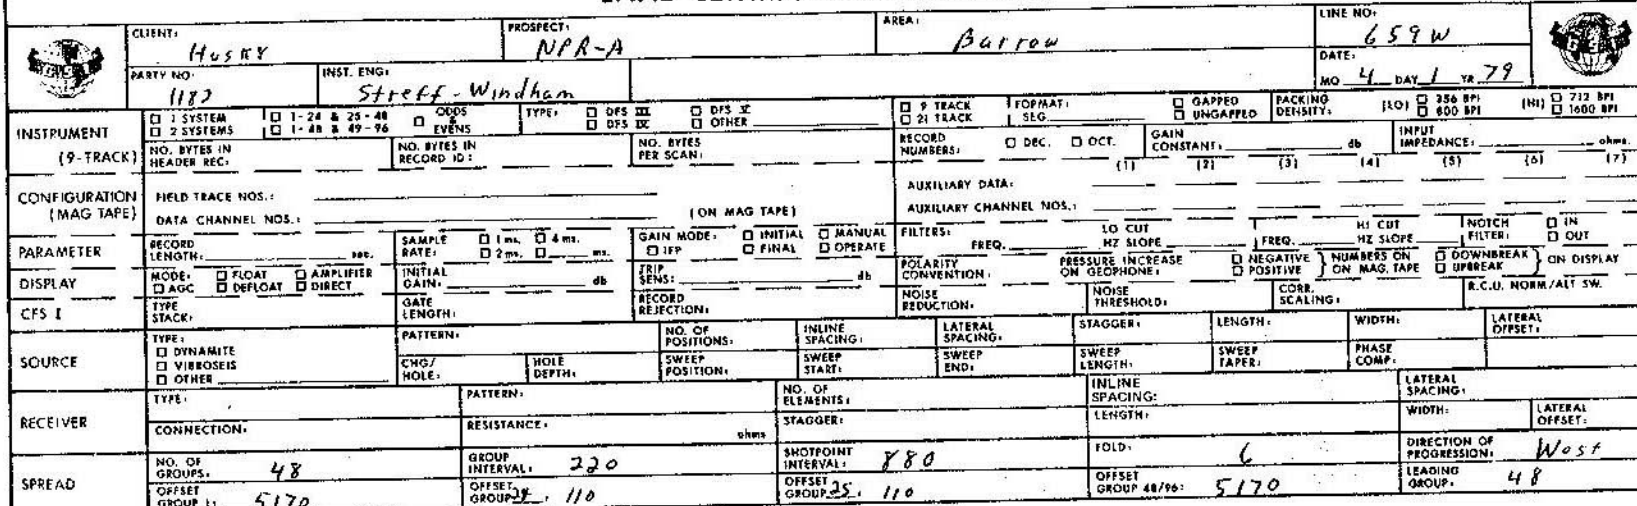 CLIENT: Husky PROSPECT: NPR-A AREA: Barrow LINE NO: 659W
PARTY NO: 1187 INST. ENG: Streff - Windham DATE: MO 4 DAY 1 YR 79
INSTRUMENT (9-TRACK) □ 1 SYSTEM □ 1-24 & 25-48 □ ODDS & EVENS TYPE: □ DFS III □ DFS V □ 9 TRACK FORMAT: □ GAPPED PACKING DENSITY: (LO) □ 356 BPI (HI) □ 712 BPI
□ 2 SYSTEMS □ 1-48 & 49-96 □ DFS IV □ OTHER □ 21 TRACK SEG □ UNGAPPED □ 800 BPI □ 1600 BPI
NO. BYTES IN HEADER REC: NO. BYTES IN RECORD ID: NO. BYTES PER SCAN: RECORD NUMBERS: □ DEC. □ OCT. GAIN CONSTANT: db INPUT IMPEDANCE: ohms.
(1) (2) (3) (4) (5) (6) (7)
CONFIGURATION (MAG TAPE) FIELD TRACE NOS.: AUXILIARY DATA:
DATA CHANNEL NOS.: (ON MAG TAPE) AUXILIARY CHANNEL NOS.:
PARAMETER RECORD LENGTH: sec. SAMPLE RATE: □ 1 ms. □ 4 ms. □ 2 ms. □ ms. GAIN MODE: □ INITIAL □ MANUAL □ IFP □ FINAL □ OPERATE FILTERS: FREQ. LO CUT HZ SLOPE FREQ. HI CUT HZ SLOPE NOTCH FILTER: □ IN □ OUT
DISPLAY MODE: □ FLOAT □ AMPLIFIER □ AGC □ DEFLOAT □ DIRECT INITIAL GAIN: db TRIP SENS: db POLARITY CONVENTION: PRESSURE INCREASE ON GEOPHONE: □ NEGATIVE □ POSITIVE } NUMBERS ON MAG. TAPE □ DOWNBREAK □ UPBREAK } ON DISPLAY
CFS I TYPE STACK: GATE LENGTH: RECORD REJECTION: NOISE REDUCTION: NOISE THRESHOLD: CORR. SCALING: R.C.U. NORM/ALT SW.
SOURCE TYPE: □ DYNAMITE □ VIBROSEIS □ OTHER PATTERN: NO. OF POSITIONS: INLINE SPACING: LATERAL SPACING: STAGGER: LENGTH: WIDTH: LATERAL OFFSET:
CHG/HOLE: HOLE DEPTH: SWEEP POSITION: SWEEP START: SWEEP END: SWEEP LENGTH: SWEEP TAPER: PHASE COMP:
RECEIVER TYPE: PATTERN: NO. OF ELEMENTS: INLINE SPACING: LATERAL SPACING:
CONNECTION: RESISTANCE: ohms STAGGER: LENGTH: WIDTH: LATERAL OFFSET:
SPREAD NO. OF GROUPS: 48 GROUP INTERVAL: 220 SHOTPOINT INTERVAL: 880 FOLD: 6 DIRECTION OF PROGRESSION: West
OFFSET GROUP 1: 5170 OFFSET GROUP 24: 110 OFFSET GROUP 25: 110 OFFSET GROUP 48/96: 5170 LEADING GROUP: 48